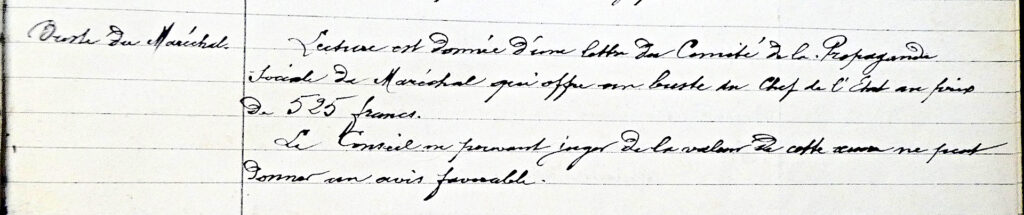 Buste du Maréchal.
Lecture est donnée d'une lettre du Comité de la Propagande
Sociale du Maréchal qui offre un buste du Chef de l'Etat au prix
de 525 francs.
Le Conseil ne pouvant juger de la valeur de cette ne peut
donner un avis favorable.